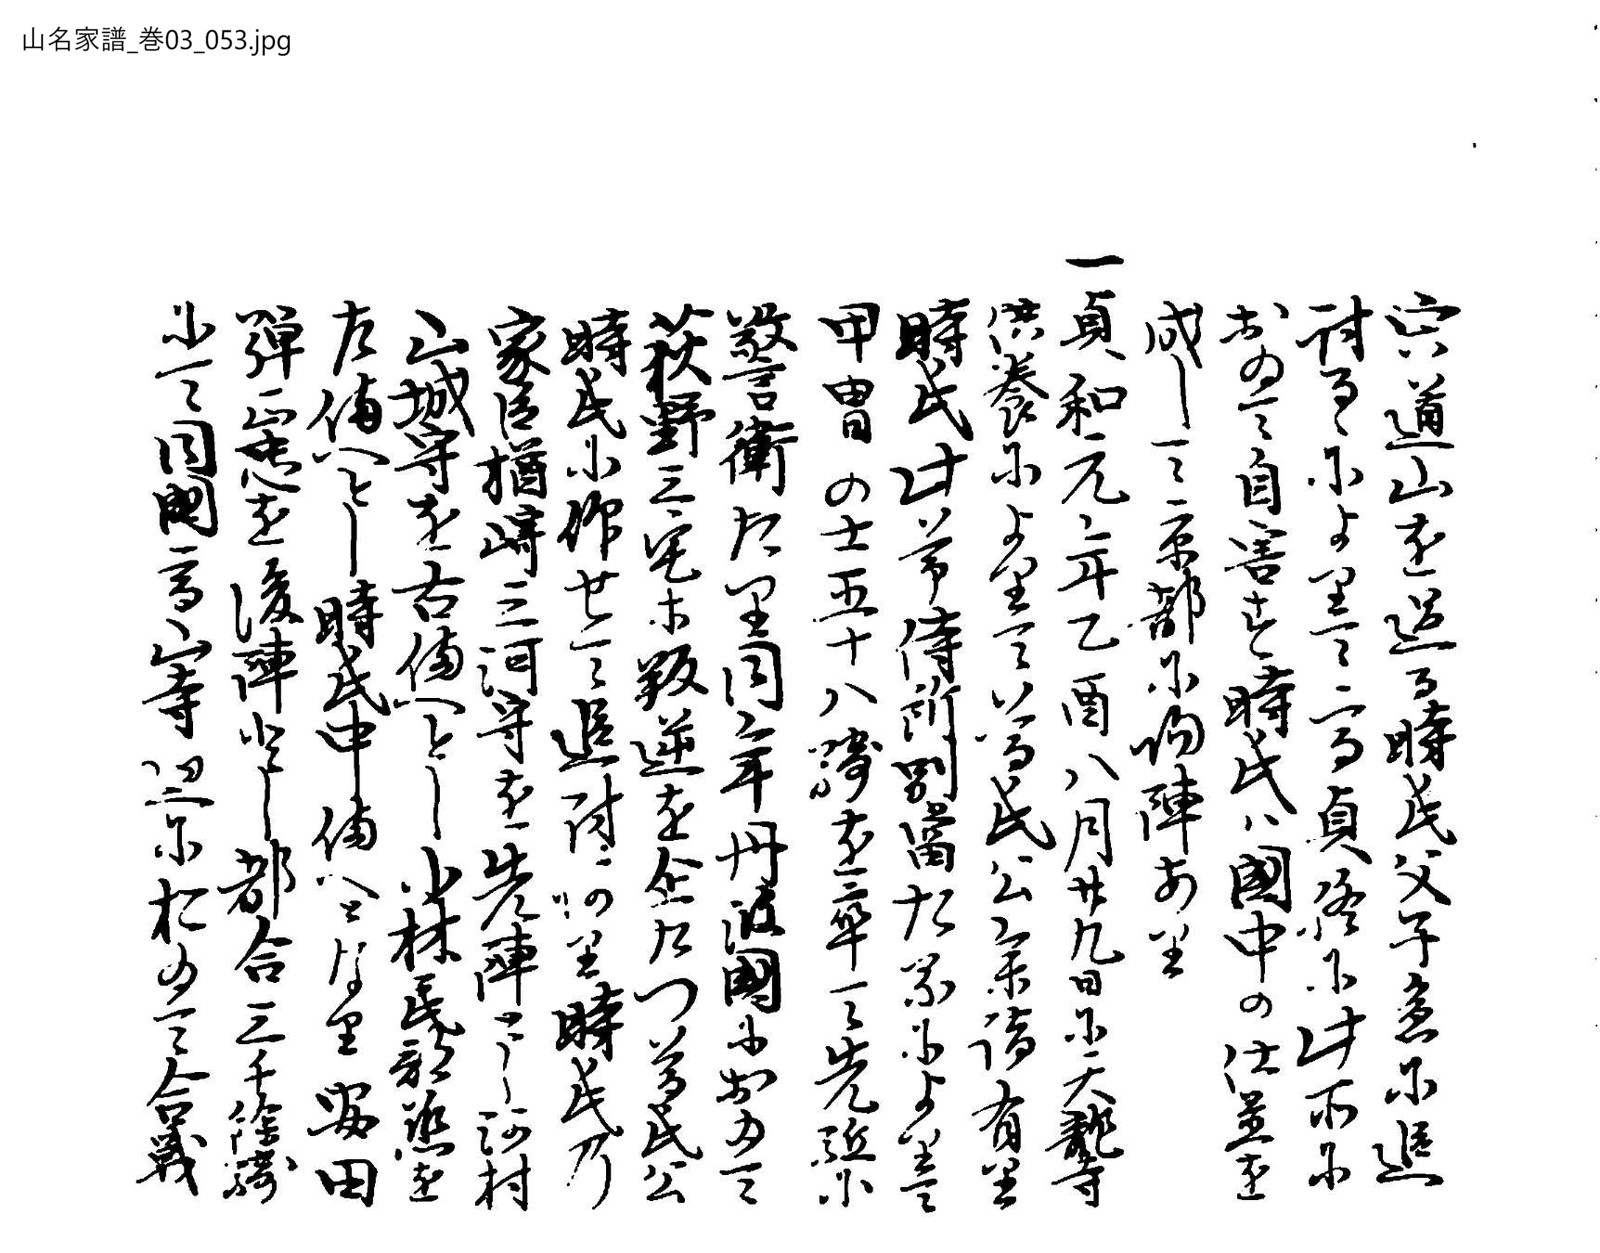 山名家譜_巻03_053.jpg
宍道山を過る時氏父子急に追
討るによりて高貞終に此所に
おゐて自害す時氏ハ國中の仕置を
成して京都に帰陣あり
一貞和元年乙酉八月廿九日に天龍寺
供養によりて尊氏公参詣有里
時氏此節侍所別當たるによりて
甲冑の士五十八騎を率て先駈に
警衛たり同年丹波國におゐて
荻野三宅等叛逆を企たつ尊氏公
時氏に仰せて追討 あり時氏乃
家臣楢崎三河守を先陣とし河村
山城守を右備へとし小林民部丞を
左備へとし時氏中備へとなり安田
弾正忠を後陣とし都合三千餘騎
にて同國高山寺 に於ゐて合戦